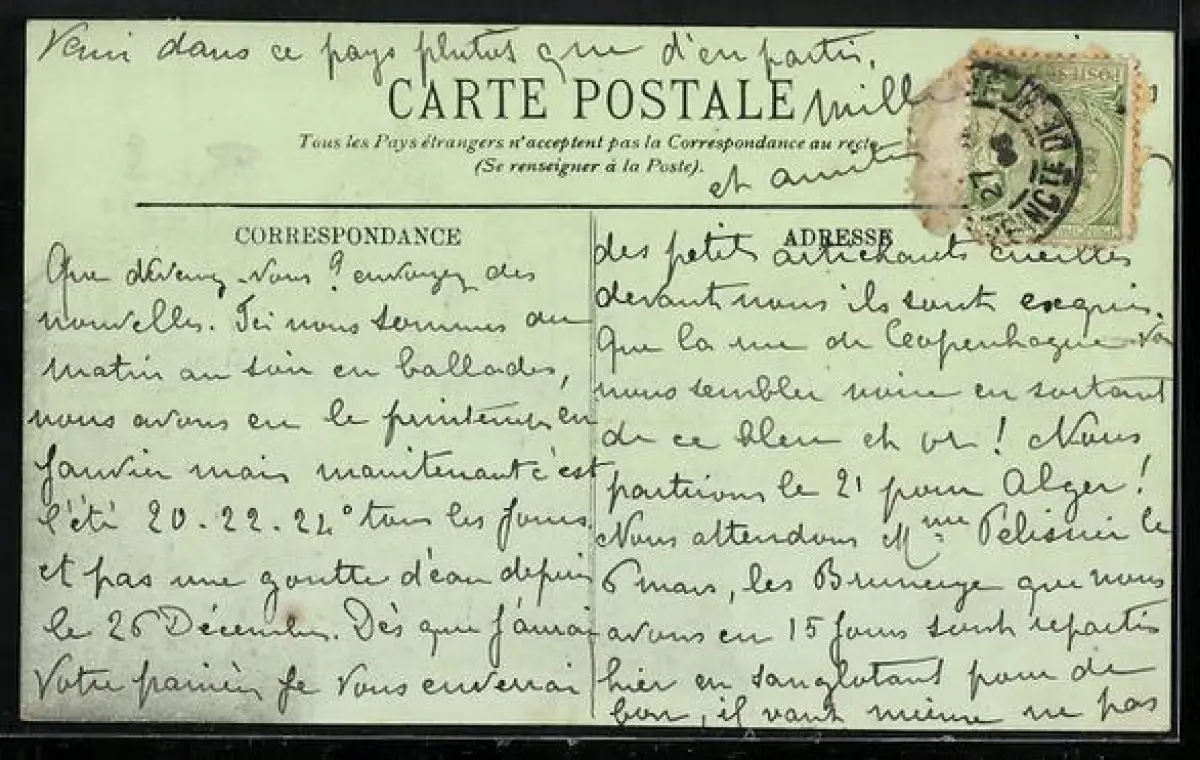 Venir dans ce pays plutot que d'en partir.
CARTE POSTALE
Mill
Tous les Pays étrangers n'acceptent pas la Correspondance au recto
(Se renseigner à la Poste).
et amitiés
CORRESPONDANCE
Que devenez-vous? envoyez des
nouvelles. Ici nous sommes du
matin au soir en ballades,
nous avons eu le printemps en
Janvier mais maintenant c'est
l'été 20-22-24° tous les Jours
et pas une goutte d'eau depuis
le 26 Décembre. Dès que J'aurai
votre Je vous enverrai
ADRESSE
des petits artichauts cueillis
devant nous ils sont exquis.
Que la rue de Copenhague va
nous sembler noire en sortant
de ce bleu et or! Nous
partirons le 21 pour Alger!
Nous attendons Mme Pélissier le
6 mars, les que nous
avons eu 15 Jours sont repartis
hier en sanglotant pour de
bon, il vaut mieux ne pas